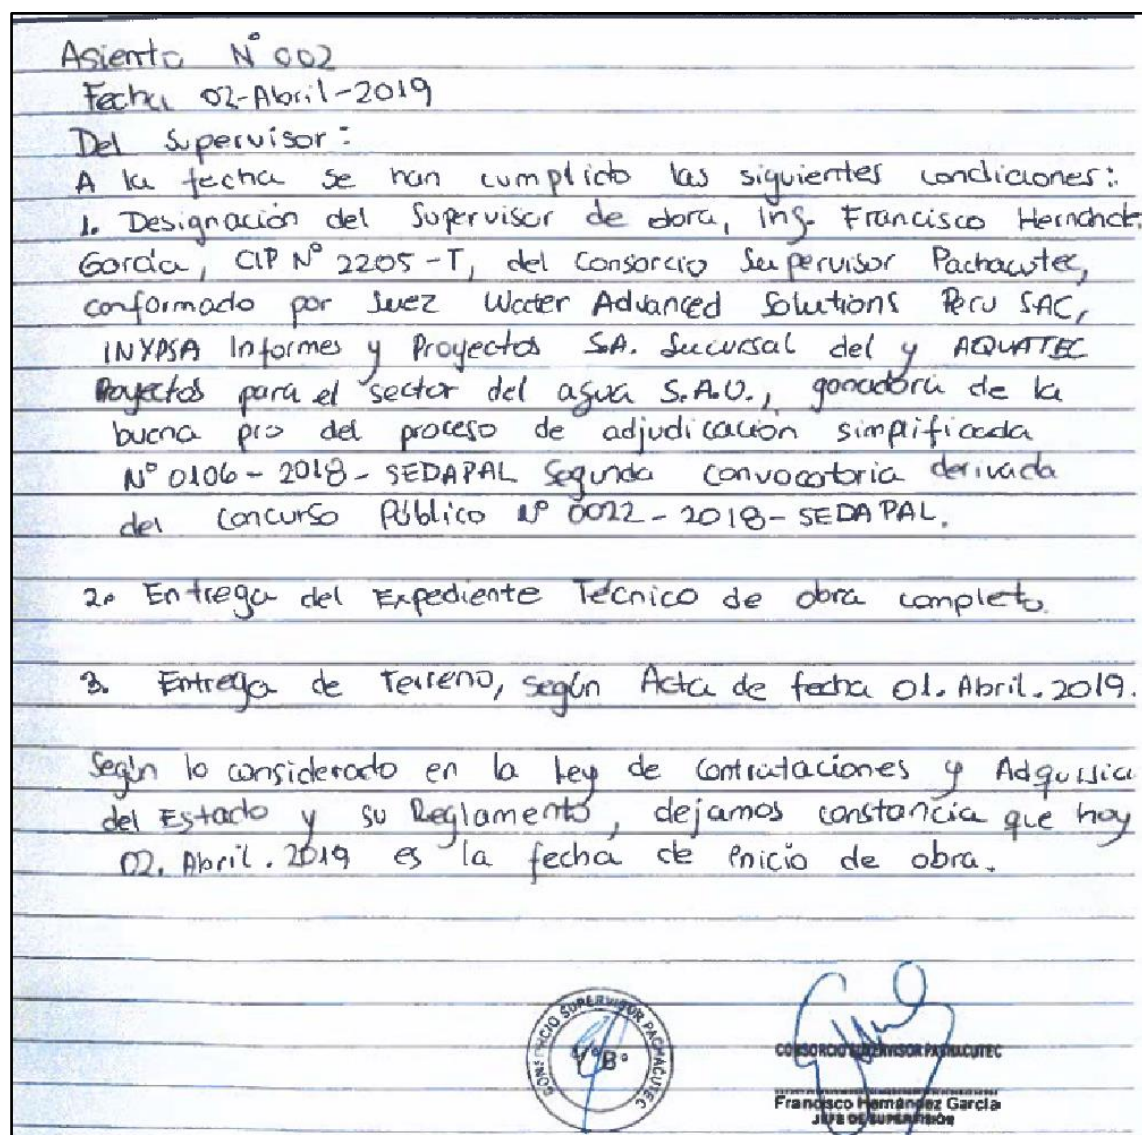 Asiento N° 002
Fecha 02-Abril-2019
Del Supervisor:
A la fecha se han cumplido las siguientes condiciones:
1. Designación del Supervisor de obra, Ing. Francisco Hernánde
García, CIP N° 2205-T, del Consorcio Supervisor Pachacutec,
conformado por Suez Water Advanced Solutions Peru SAC,
INYPSA Informes y Proyectos S.A. Sucursal del y AQUATEC
Proyectos para el sector del agua S.A.U., ganadora de la
buena pro del proceso de adjudicación simplificada
N° 0106-2018-SEDAPAL Segunda convocatoria derivada
del Concurso Público N° 0022-2018-SEDAPAL.
2. Entrega del Expediente Técnico de obra completo
3. Entrega de Terreno, según Acta de fecha 01. Abril. 2019.
Según lo considerado en la Ley de Contrataciones y Adquisic
del Estado y su Reglamento, dejamos constancia que hoy
02. Abril. 2019 es la fecha de inicio de obra.
CONSORCIO SUPERVISOR PACHACUTEC
V°B°
CONSORCIO SUPERVISOR PACHACUTEC
Francisco Hernández García
JEFE DE SUPERVISIÓN